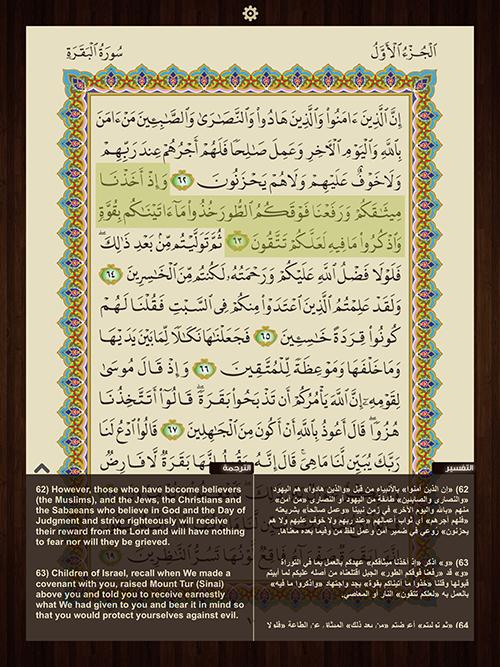 الْجُزْءُ الْأَوَّلُ
سُورَةُ الْبَقَرَةِ
إِنَّ الَّذِينَ ءَامَنُوا وَالَّذِينَ هَادُوا وَالنَّصَارَىٰ وَالصَّابِئِينَ مَنْ ءَامَنَ
بِاللَّهِ وَالْيَوْمِ الْآخِرِ وَعَمِلَ صَالِحًا فَلَهُمْ أَجْرُهُمْ عِندَ رَبِّهِمْ
وَلَا خَوْفٌ عَلَيْهِمْ وَلَا هُمْ يَحْزَنُونَ ٦٢ وَإِذْ أَخَذْنَا
مِيثَاقَكُمْ وَرَفَعْنَا فَوْقَكُمُ الطُّورَ خُذُوا مَا ءَاتَيْنَاكُم بِقُوَّةٍ
وَاذْكُرُوا مَا فِيهِ لَعَلَّكُمْ تَتَّقُونَ ٦٣ ثُمَّ تَوَلَّيْتُم مِّن بَعْدِ ذَٰلِكَ ۖ
فَلَوْلَا فَضْلُ اللَّهِ عَلَيْكُمْ وَرَحْمَتُهُ لَكُنتُم مِّنَ الْخَاسِرِينَ ٦٤
وَلَقَدْ عَلِمْتُمُ الَّذِينَ اعْتَدَوْا مِنكُمْ فِي السَّبْتِ فَقُلْنَا لَهُمْ
كُونُوا قِرَدَةً خَاسِئِينَ ٦٥ فَجَعَلْنَاهَا نَكَالًا لِّمَا بَيْنَ يَدَيْهَا
وَمَا خَلْفَهَا وَمَوْعِظَةً لِّلْمُتَّقِينَ ٦٦ وَإِذْ قَالَ مُوسَىٰ
لِقَوْمِهِ إِنَّ اللَّهَ يَأْمُرُكُمْ أَن تَذْبَحُوا بَقَرَةً ۖ قَالُوا أَتَتَّخِذُنَا
هُزُوًا ۖ قَالَ أَعُوذُ بِاللَّهِ أَنْ أَكُونَ مِنَ الْجَاهِلِينَ ٦٧ قَالُوا ادْعُ لَنَا
رَبَّكَ يُبَيِّن لَّنَا مَا هِيَ ۚ قَالَ إِنَّهُ يَقُولُ إِنَّهَا بَقَرَةٌ لَّا فَارِضٌ
التفسير
الترجمة
62) However, those who have become believers
(the Muslims), and the Jews, the Christians and the
Sabaeans who believe in God and the Day of
Judgment and strive righteously will receive
their reward from the Lord and will have nothing
to fear nor will they be grieved.
63) Children of Israel, recall when We made a
covenant with you, raised Mount Tur (Sinai)
above you and told you to receive earnestly
what We had given to you and bear it in mind so
that you would protect yourselves against evil.
62) «إن الذين آمنوا» بالأنبياء من قبل «والذين هادوا» هم اليهود
«والنصارى والصابئين» طائفة من اليهود أو النصارى «من آمن»
منهم «بالله واليوم الآخر» في زمن نبينا «وعمل صالحا» بشريعته
«فلهم أجرهم» أي ثواب أعمالهم «عند ربهم ولا خوف عليهم ولا هم
يحزنون» روعي في ضمير آمن وعمل لفظ من وفيما بعده معناها.
63) «و» اذكر «إذ أخذنا ميثاقكم» عهدكم بالعمل بما في التوراة
«و» قد «رفعنا فوقكم الطور» الجبل اقتلعناه من أصله عليكم لما أبيتم
قبولها وقلنا «خذوا ما آتيناكم بقوة» بجد واجتهاد «واذكروا ما فيه»
بالعمل به «لعلكم تتقون» النار أو المعاصي.
64) «ثم توليتم» أعرضتم «من بعد ذلك» الميثاق عن الطاعة «فلولا